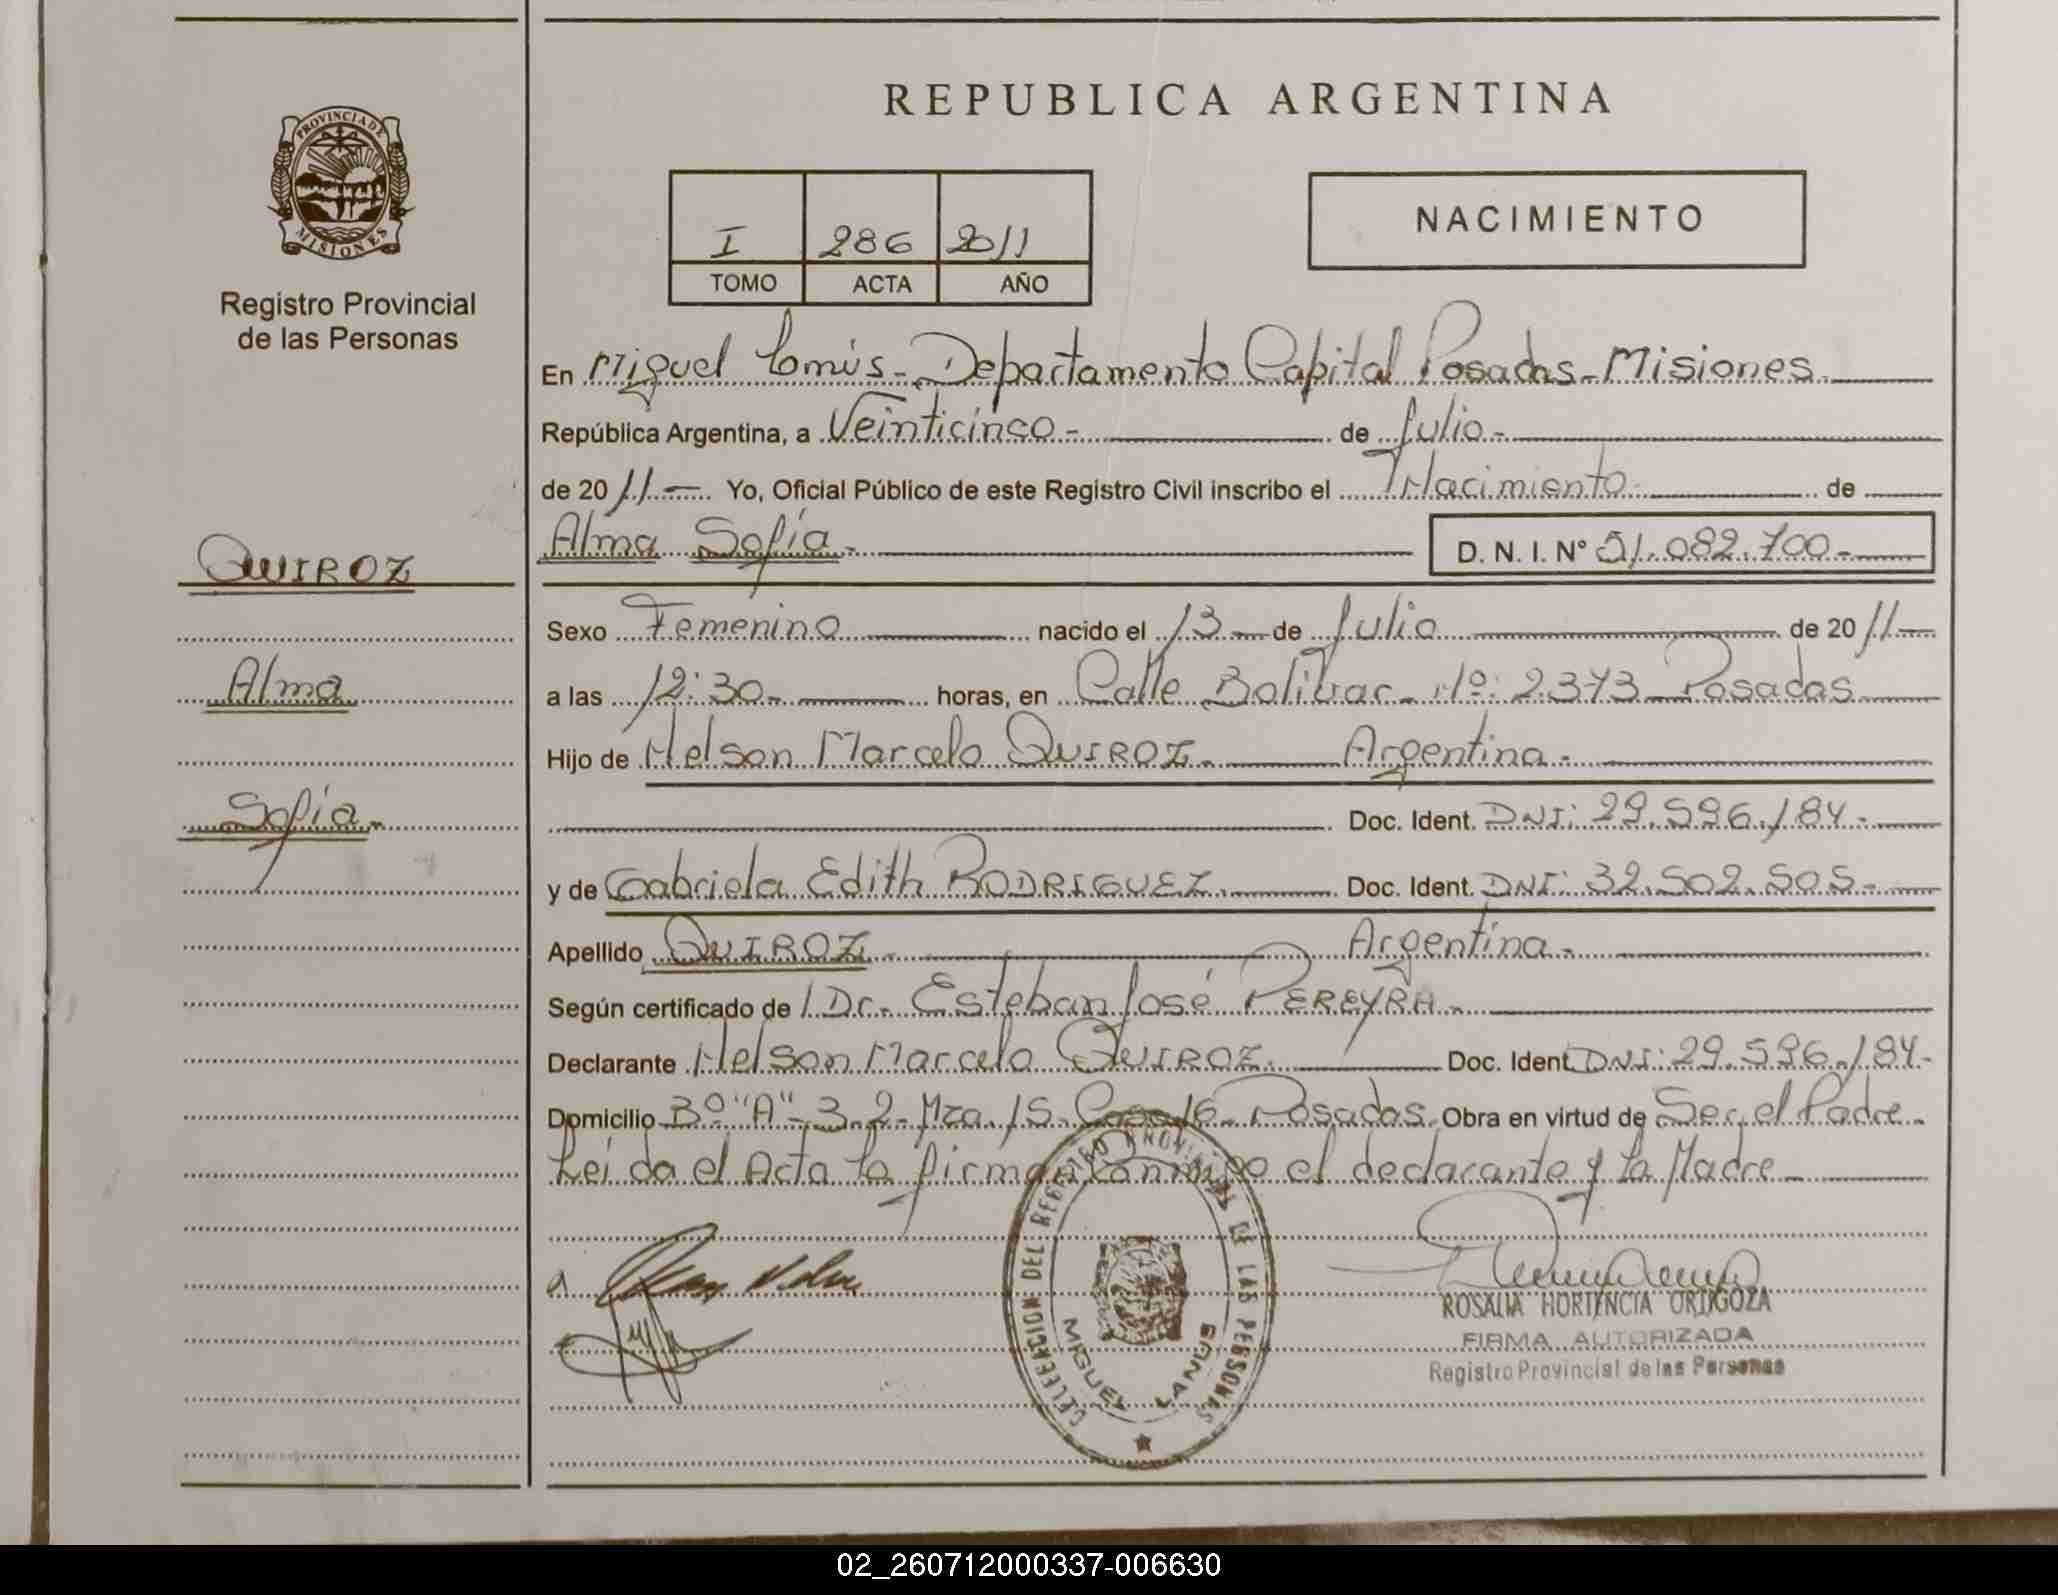 REPUBLICA ARGENTINA
PROVINCIA DE
MISIONES
Registro Provincial
de las Personas
I 286 2011
TOMO ACTA AÑO
NACIMIENTO
En Miguel Lanús - Departamento Capital Posadas - Misiones
República Argentina, a Veinticinco - de Julio -
de 2011 - Yo, Oficial Público de este Registro Civil inscribo el Nacimiento de
Alma Sofía - D. N. I. Nº 51.082.700 -
QUIROZ
Alma
Sofía -
Sexo Femenino nacido el 13 - de Julio de 2011 -
a las 12:30 - horas, en Calle Bolivar - Nº: 2373 - Posadas
Hijo de Nelson Marcelo QUIROZ - Argentina -
Doc. Ident. DNI: 29.596.184 -
y de Gabriela Edith RODRIGUEZ - Doc. Ident. DNI: 32.502.505 -
Apellido QUIROZ - Argentina -
Según certificado de Dr. Esteban José PEREYRA -
Declarante Nelson Marcelo QUIROZ - Doc. Ident. DNI: 29.596.184 -
Domicilio Bº "A" - 3.2 - Mza. 15 - Casa 16 - Posadas Obra en virtud de Ser el Padre -
Leída el Acta la firman conmigo el declarante y la Madre
DELEGACION DEL REGISTRO PROVINCIAL DE LAS PERSONAS
MIGUEL LANUS
ROSALIA HORTENCIA ORTIGOZA
FIRMA AUTORIZADA
Registro Provincial de las Personas
02_260712000337-006630